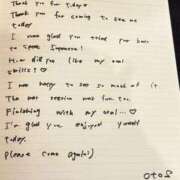 Thank you for today
Thank you for coming to see me
today.
I was glad you tried you best
to speak Japanese!
How did you like my oral
skills? ♡
I was happy to see so much of it
The was session was fun too.
Finishing with my oral... ♡
I'm glad you enjoyed yourself
today.
Please come again!